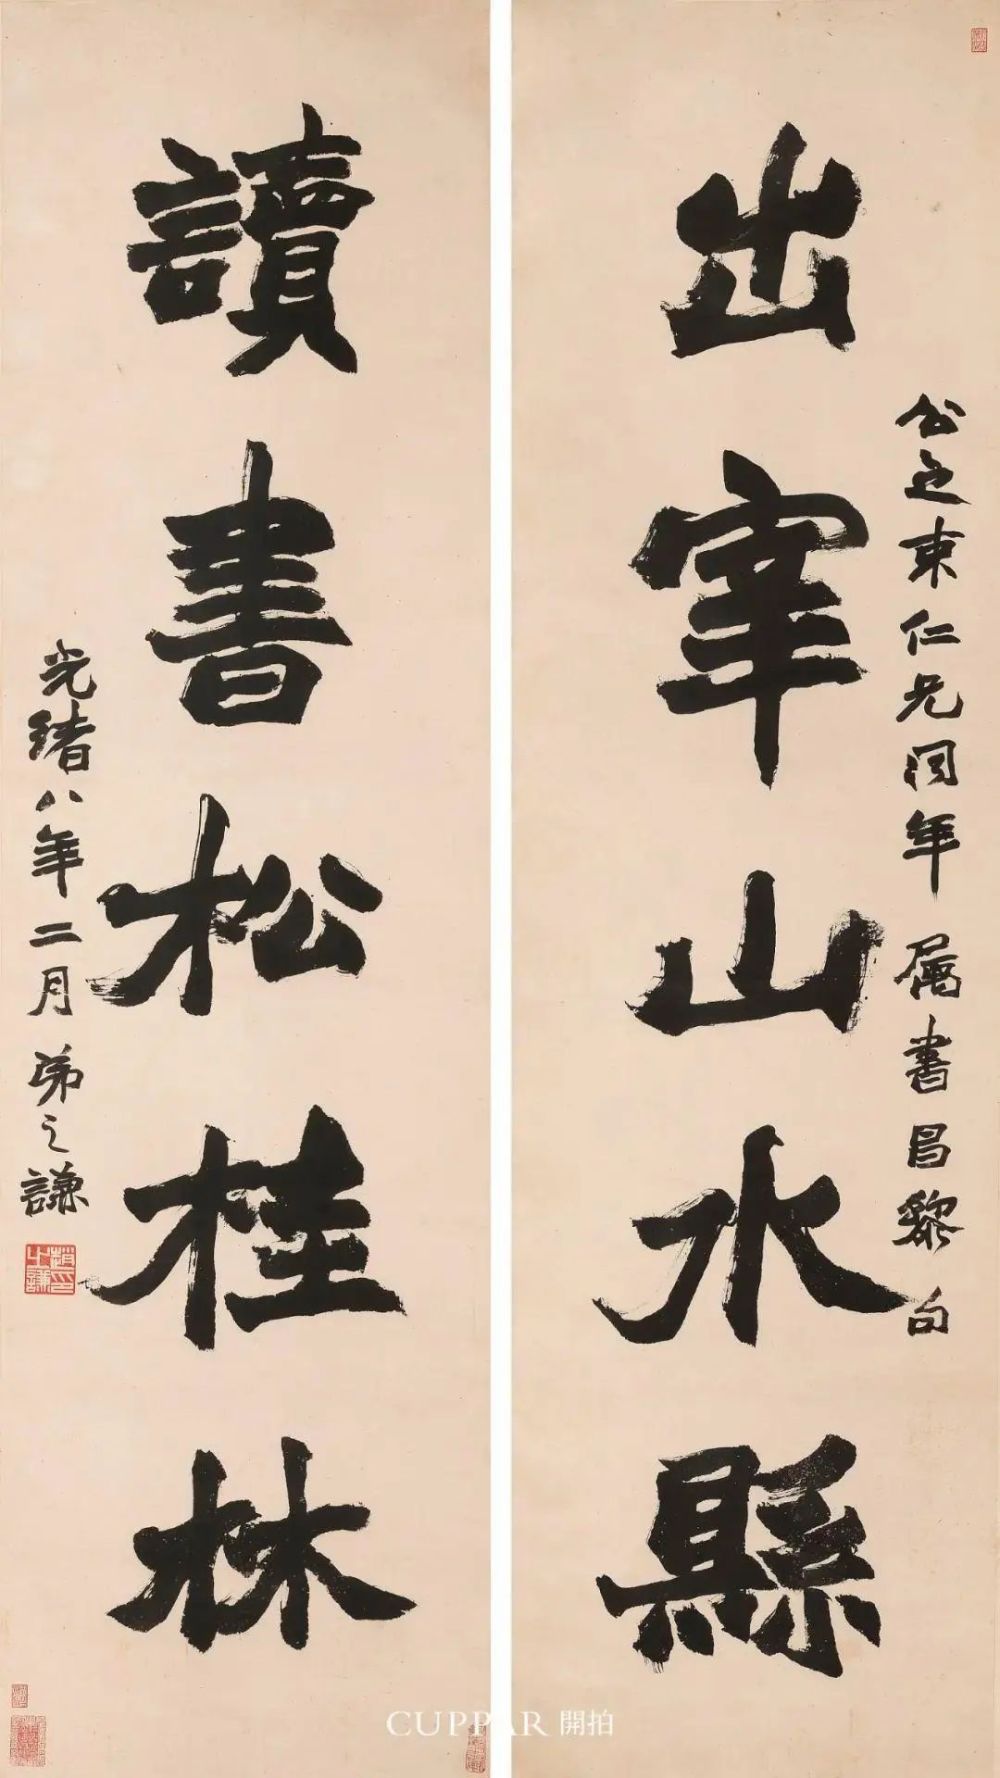 出宰山水縣
公之束仁兄同年 属書昌黎句
讀書松桂林
光緒八年二月 弟之謙
趙之謙印
CUPPAR 開拍